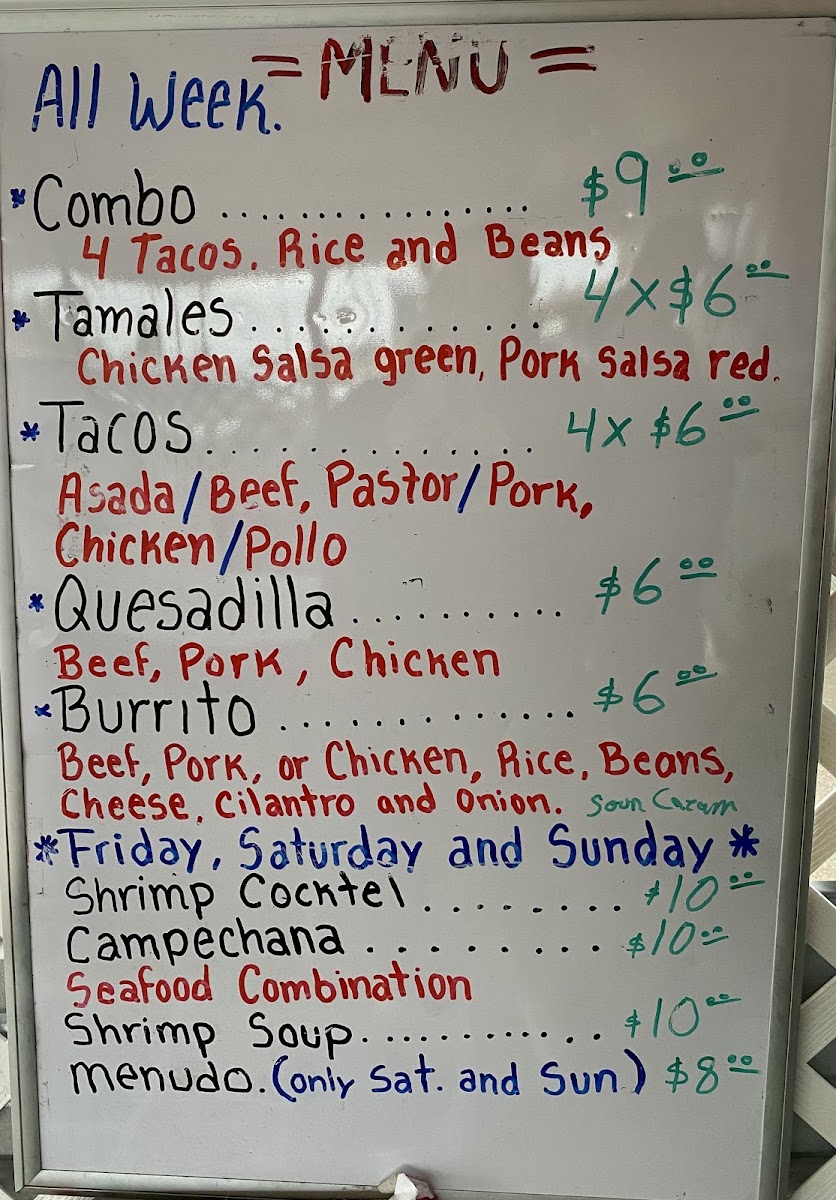 = MENU =
All Week.
* Combo ................ $9.00
4 Tacos. Rice and Beans
* Tamales ............. 4x$6.00
Chicken Salsa green, Pork Salsa red.
* Tacos .............. 4x $6.00
Asada/Beef, Pastor/Pork,
Chicken/Pollo
* Quesadilla .......... $6.00
Beef, Pork, Chicken
* Burrito ............. $6.00
Beef, Pork, or Chicken, Rice, Beans,
Cheese, Cilantro and Onion. Sour Caram
* Friday, Saturday and Sunday *
Shrimp Cocktel ........ $10.00
Campechana ......... $10.00
Seafood Combination
Shrimp Soup ............ $10.00
menudo. (only Sat. and Sun) $8.00